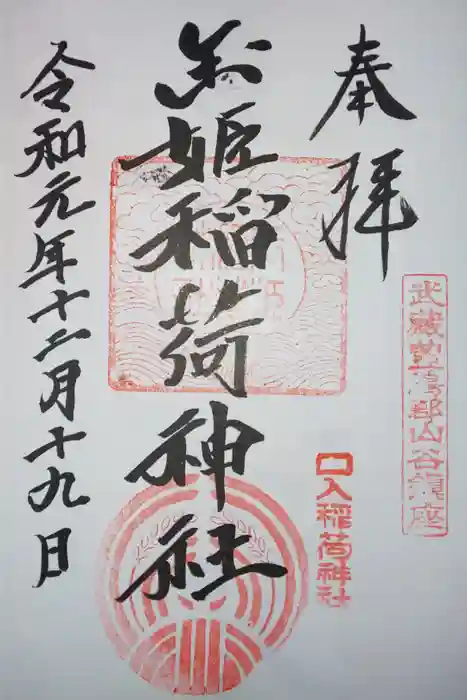 奉拝
武蔵豊島郡山谷鎮座
口入稲荷神社
玉姫稲荷神社
令和元年十二月十九日